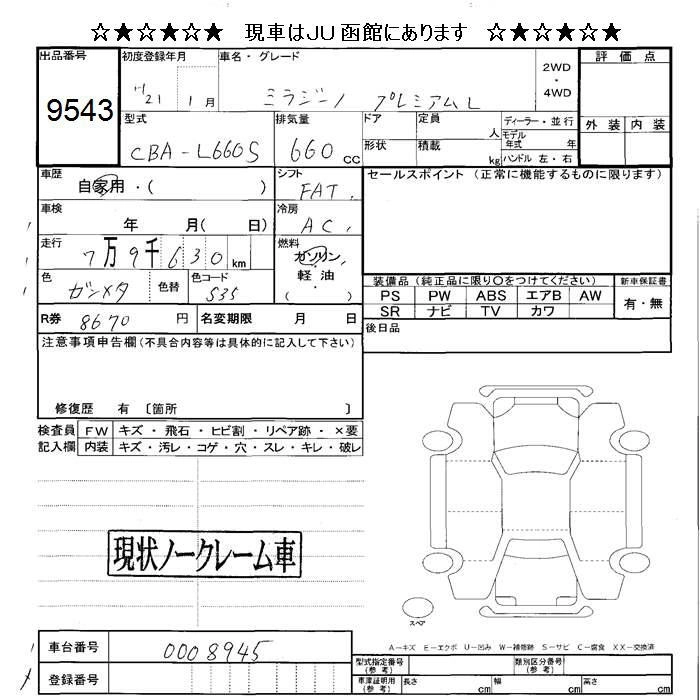 ☆★☆★☆★ 現車はJU函館にあります ☆★☆★☆★
出品番号 初度登録年月 車名・グレード 評価点
9543 21 1月 ミラジーノ プレミアムL 2WD・4WD
型式 排気量 ドア 定員 人 ディーラー・並行 外装 内装
CBA-L660S 660cc 形状 積載 kg モデル年式 年
ハンドル 左・右
車歴 自家用・( ) シフト FAT セールスポイント(正常に機能するものに限ります)
車検 年 月( 日) 冷房 AC
走行 7万9千630km 燃料 ガソリン・軽油( )
色 ガンメタ 色替 色コード S35
装備品(純正品に限り○をつけてください) 新車保証書
PS PW ABS エアB AW 有・無
SR ナビ TV カワ
R券 8670円 名変期限 月 日 後日品
注意事項申告欄(不具合内容等は具体的に記入して下さい)
修復歴 有 〔箇所 〕
検査員 FW キズ・飛石・ヒビ割・リペア跡・×要
記入欄 内装 キズ・汚レ・コゲ・穴・スレ・キレ・破レ
現状ノークレーム車
スペア
A-キズ E-エクボ U-凹み W-補修跡 S-サビ C-腐食 XX-交換済
車台番号 0008945
登録番号
型式指定番号(参考) 類別区分番号(参考)
車庫証明用(参考) 長さ cm 幅 cm 高さ cm